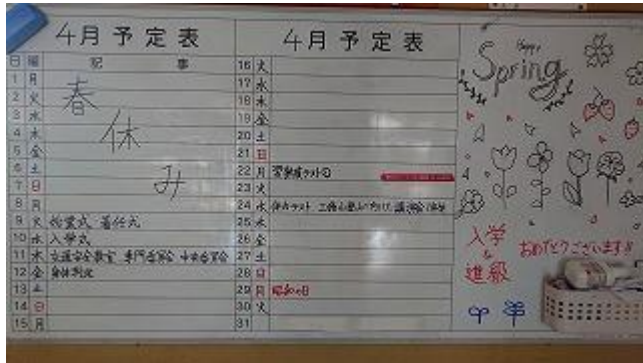 4月予定表
日 曜 記事
1 月
2 火
3 水
4 木
5 金
6 土
7 日
8 月
9 火 始業式 着任式
10 水 入学式
11 木 交通安全教室 専門委員会 中央委員会
12 金 身体測定
13 土
14 日
15 月
春休み
4月予定表
16 火
17 水
18 木
19 金
20 土
21 日
22 月
23 火
24 水
25 木
26 金
27 土
28 日
29 月 昭和の日
30 火
31
Happy
Spring
入学
&
進級
おめでとうございます!!